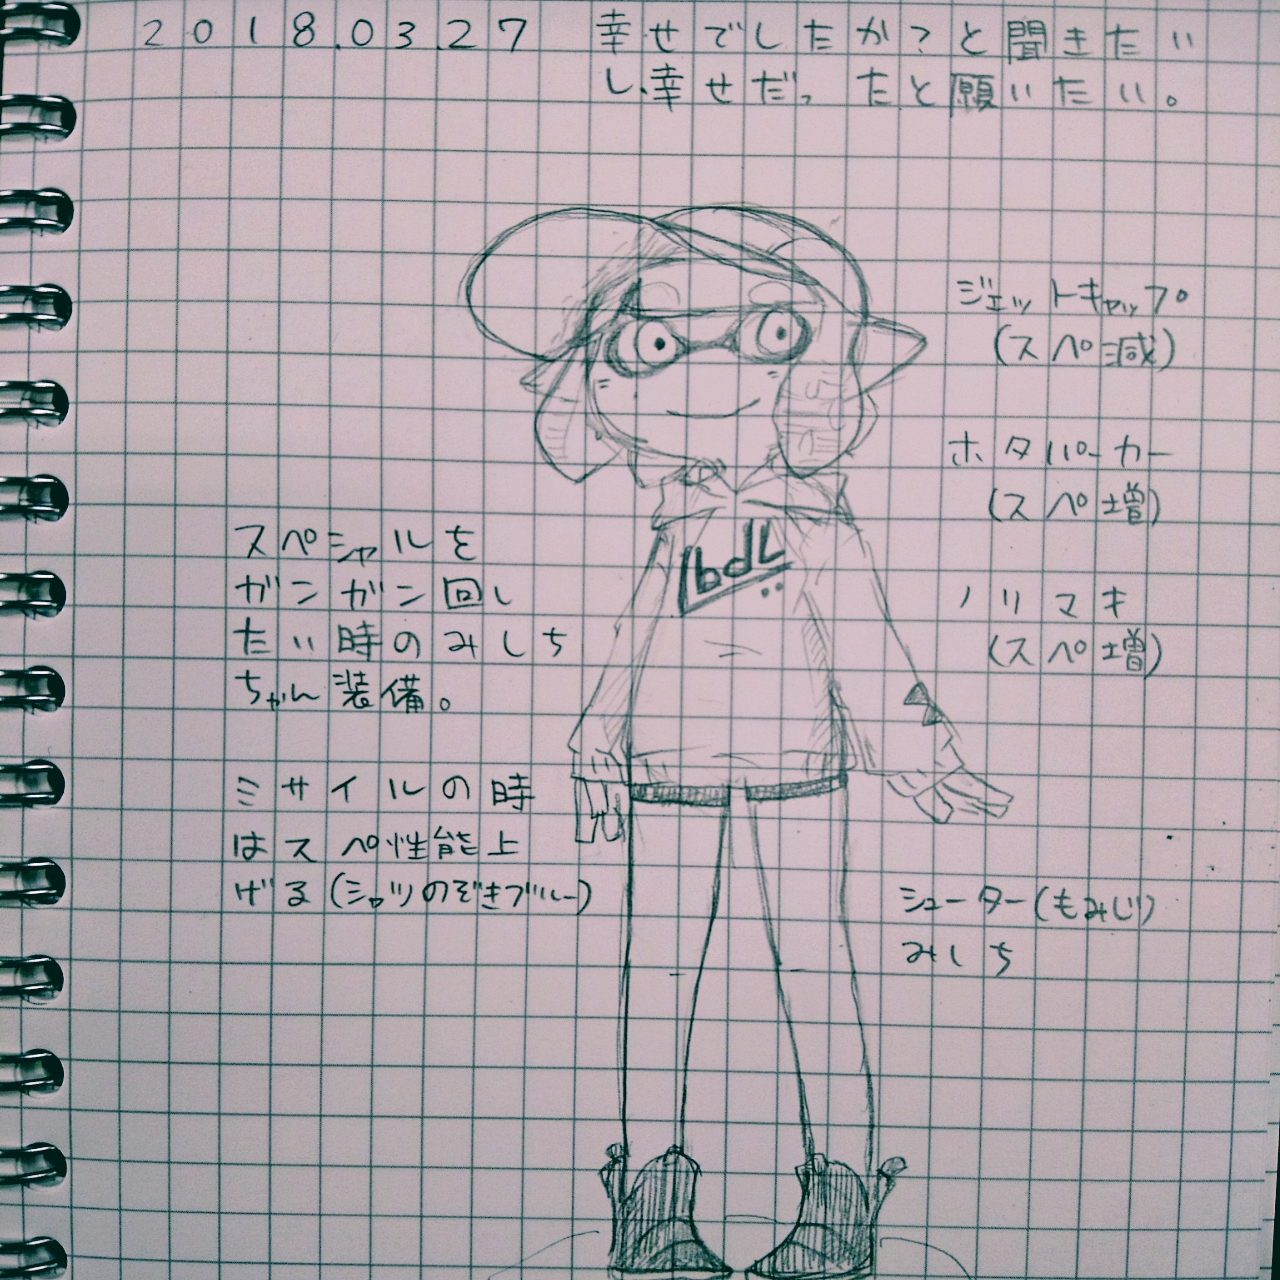 2018.03.27
幸せでしたか?と聞きたい
し、幸せだったと願いたい。
ジェットキャップ
(スペ減)
ホタパーカー
(スペ増)
ノリマキ
(スペ増)
スペシャルを
ガンガン回し
たい時のみしち
ちゃん装備。
ミサイルの時
はスペ性能上
げる(シャツのぞきブルー)
シューター(もみじ)
みしち